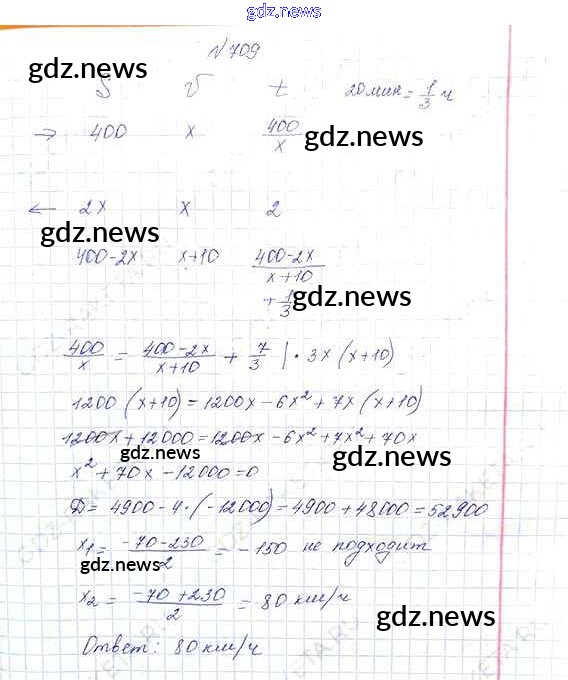 gdz.news
N709
gdz.news
S v t 20 мин = 1/3 ч
→ 400 x 400/x gdz.news
← 2x x 2
gdz.news
400-2x x+10 400-2x/x+10
+1/3 gdz.news
400/x = 400-2x/x+10 + 7/3 | · 3x (x+10)
1200 (x+10) = 1200x - 6x² + 7x (x+10)
1200x + 12000 = 1200x - 6x² + 7x² + 70x
gdz.news gdz.news
x² + 70x - 12000 = 0
D = 4900 - 4 · (-12000) = 4900 + 48000 = 52900
x₁ = -70-230/2 = -150 не подходит
gdz.news
x₂ = -70+230/2 = 80 км/ч
gdz.news
Ответ: 80 км/ч